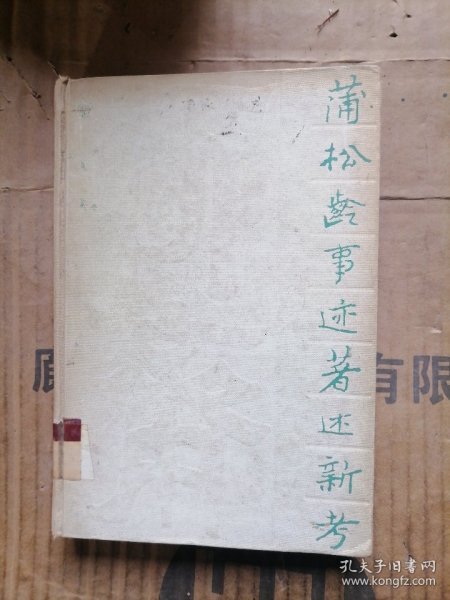 蒲松龄事迹著述新考
有限
孔夫子旧书网
www.kongfz.com